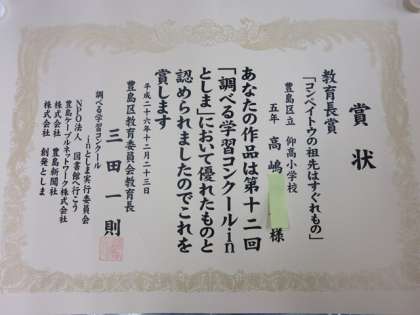 賞状
教育長賞
「コンペイトウの祖先はすぐれもの」
豊島区立 仰高小学校
五年 高嶋 様
あなたの作品は第十二回
「調べる学習コンクール・in
としま」において優れたものと
認められましたのでこれを
賞します
平成二十六年十二月二十三日
豊島区教育委員会教育長
三田一則
調べる学習コンクール
inとしま実行委員会
NPO法人 図書館へ行こう
豊島ケーブルネットワーク株式会社
株式会社 豊島新聞社
株式会社 創発としま